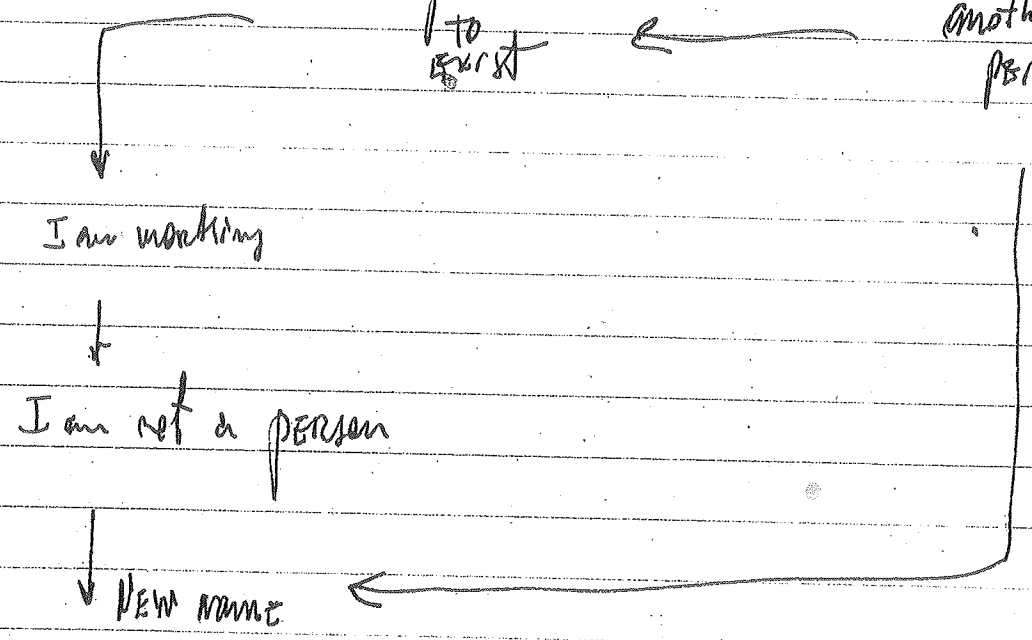 to
exist
anoth
per
I am working
I am not a person
New name